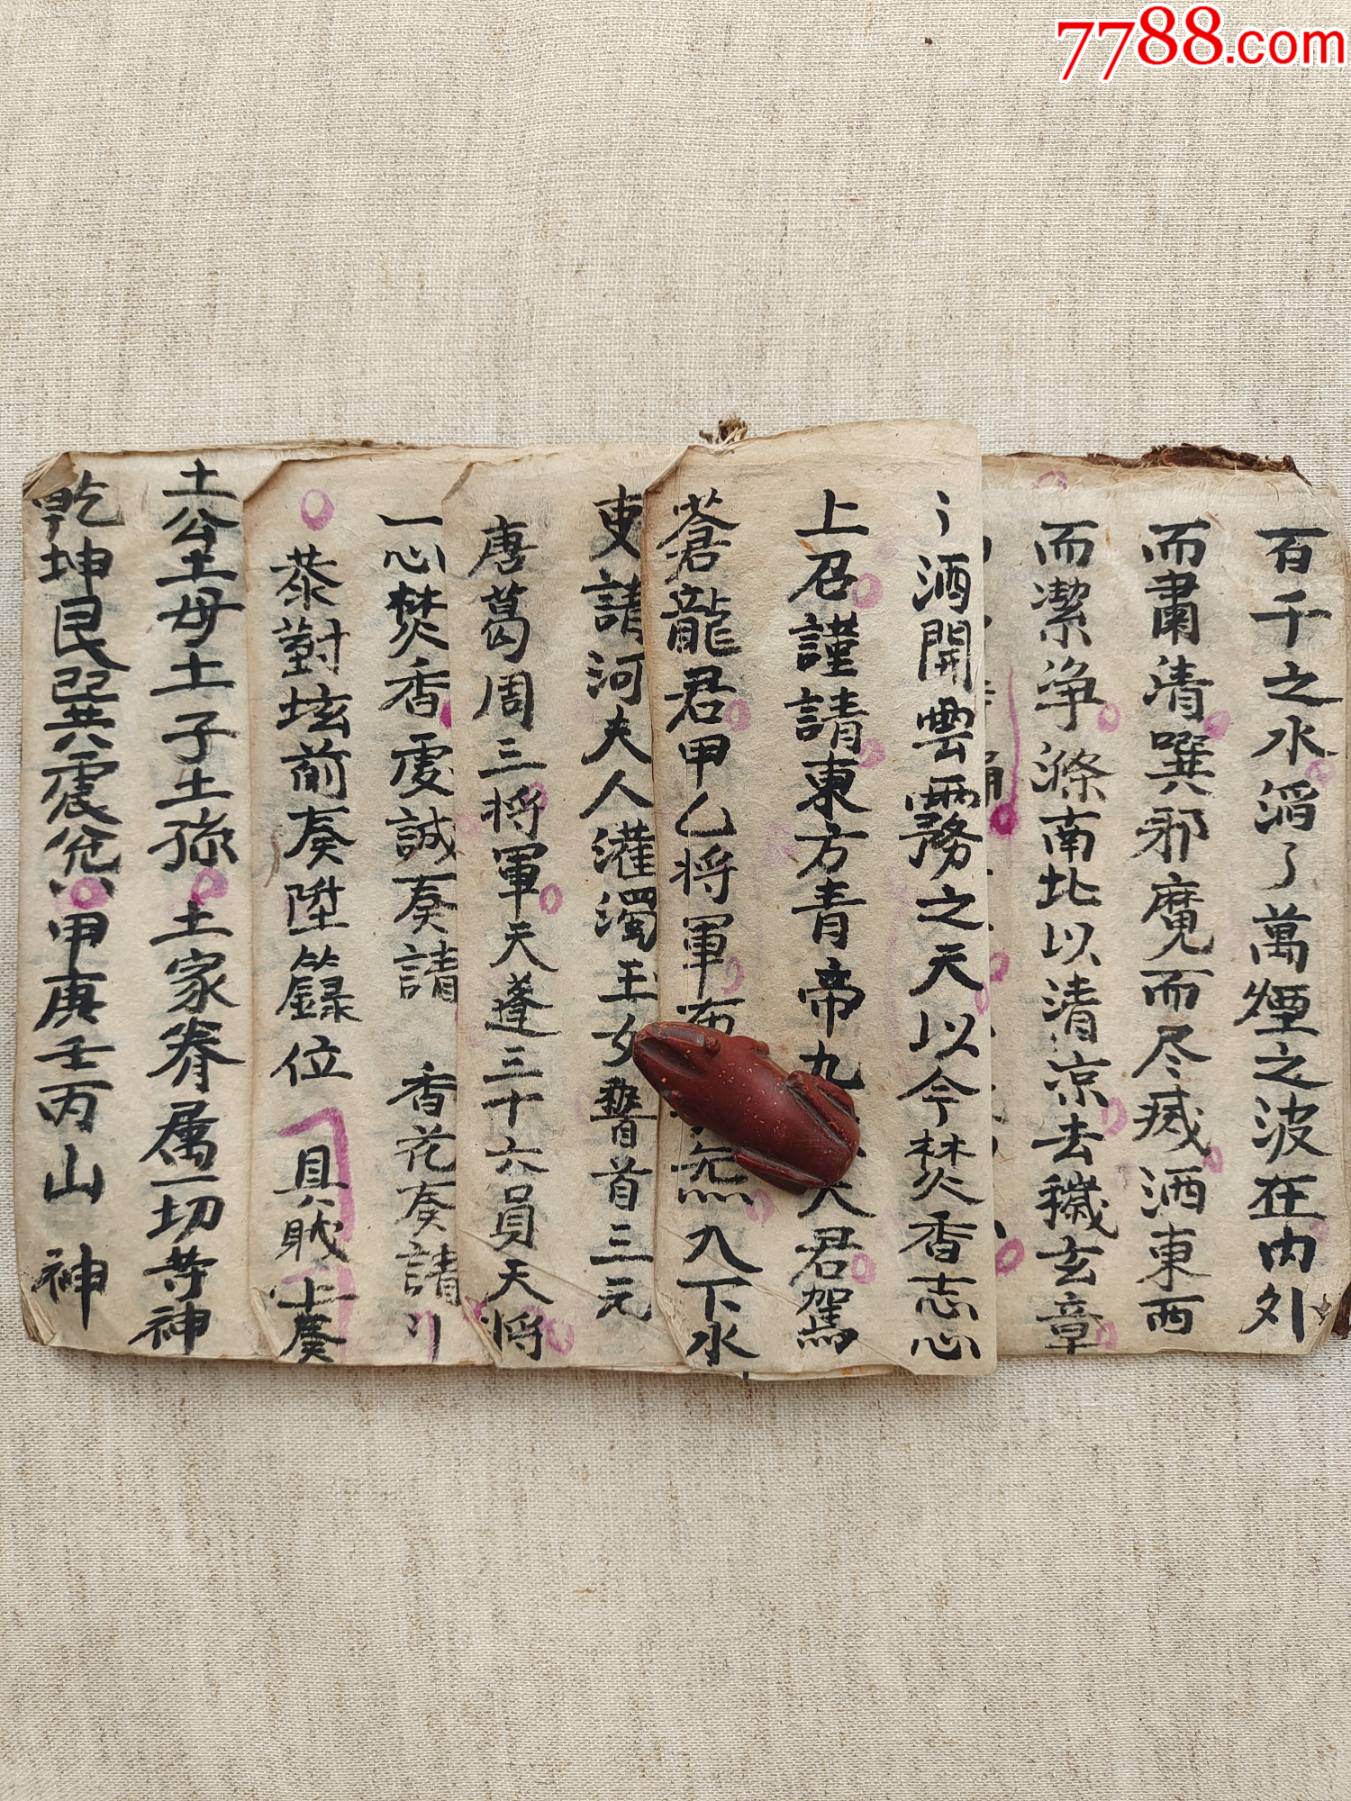 7788.com
百千之水滔了萬煙之波在內外
而肅清噀邪魔而尽滅洒東西
而潔净滌南北以清凉去穢玄章
洒開雲霧之天以今焚香志心
上召謹請東方青帝九君駕
蒼龍君甲乙将軍布炁入下水
更請河夫人灌濁玉女謦首三元
唐葛周三将軍天蓬三十六員天将
一心焚香虔誠奏請 香花奏請
恭對坛前奏陞籙位 具職上奏
土公土母土子土孫土家眷属一切等神
乾坤艮巽震兌甲庚壬丙山神